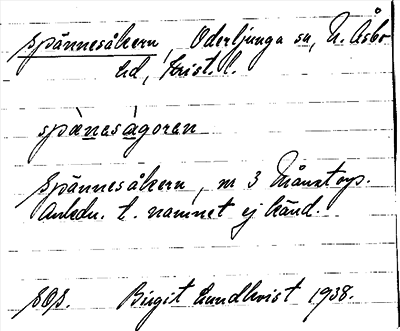 Spännesåkern, Oderljunga sn, N. Åsbo
hd, Krist. l.
spä̀nesågoren
Spännesåkern, nr 3 Månstorp.
Anledn. t. namnet ej känd.
SOS. Birgit Lundkvist 1938.